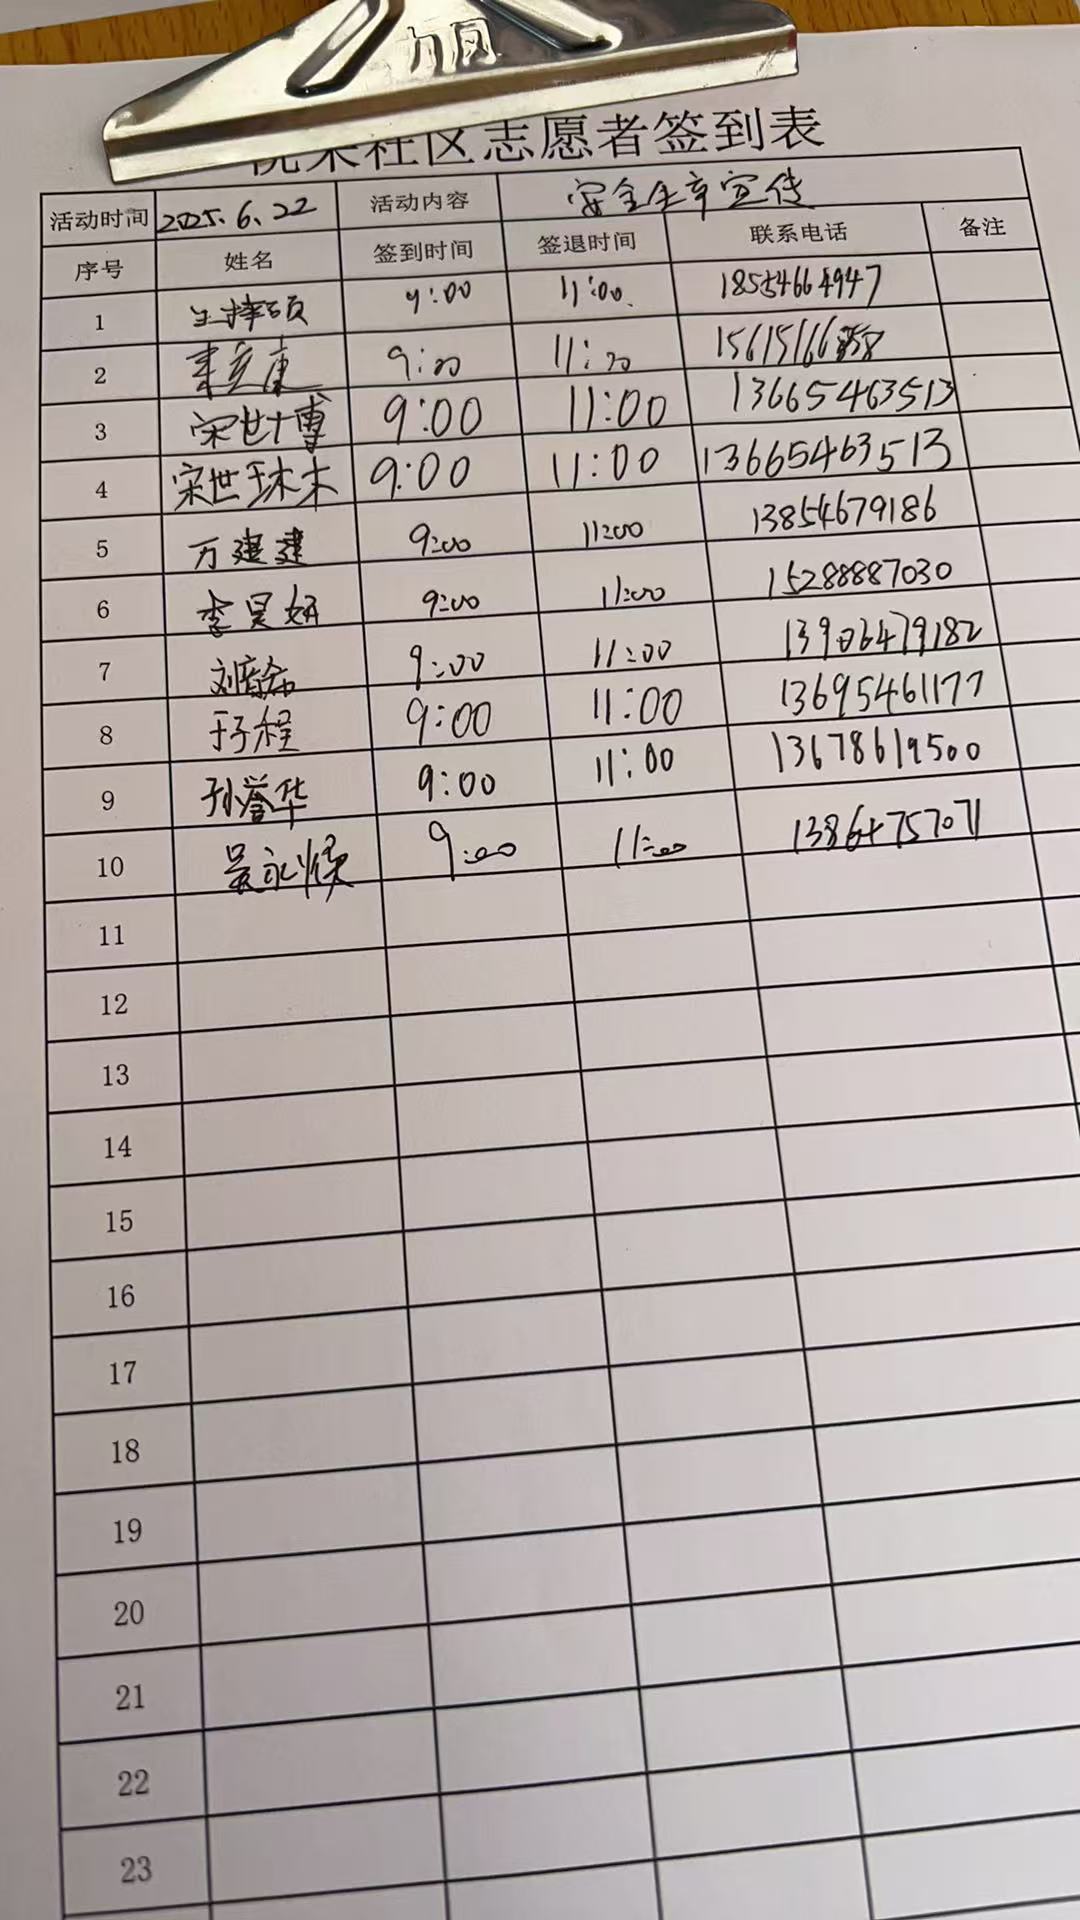 力风
社区志愿者签到表
活动时间 2025.6.22 活动内容 安全生产宣传
序号 姓名 签到时间 签退时间 联系电话 备注
1 9:00 11:00 18554664947
2 9:00 11:00 15615166
3 宋世博 9:00 11:00 13665463513
4 宋世琳 9:00 11:00 13665463513
5 万建建 9:00 11:00 13854679186
6 李昊妍 9:00 11:00 15288887030
7 9:00 11:00 13906479182
8 于子程 9:00 11:00 13695461177
9 孙誉华 9:00 11:00 13678619500
10 吴永 9:00 11:00 13864757071
11
12
13
14
15
16
17
18
19
20
21
22
23